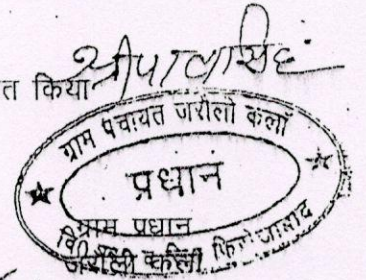 त किया श्रीपालसिंह
ग्राम पंचायत जरौली कलाँ
प्रधान
ग्राम प्रधान
जरौली कलाँ फिरोजाबाद